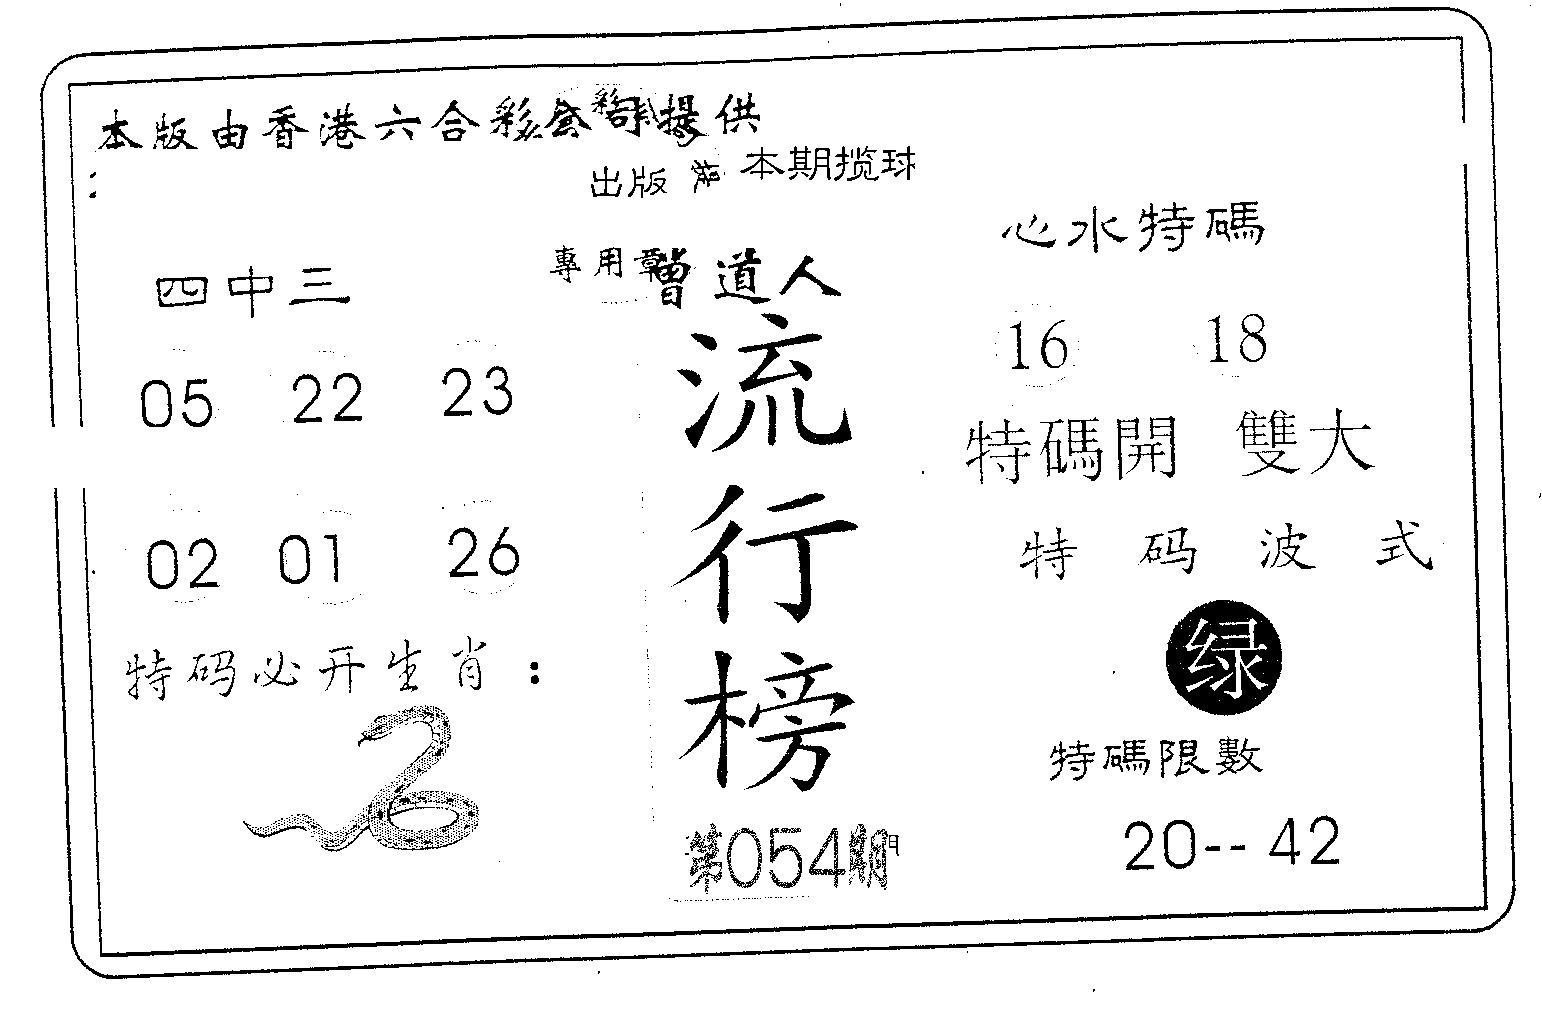 本版由香港六合彩公司提供
出版 本期揽球
專用章 曾道人
流行榜
第054期
四中三
05 22 23
02 01 26
特码必开生肖：
心水特碼
16 18
特碼開 雙大
特码波式
绿
特碼限數
20--42